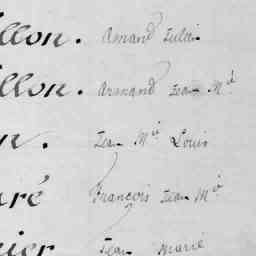 illon. Amand Julien
illon. Armand Jean Mie
n. Jean Mie Louis
uré François Jean Mie
nier Jean Marie